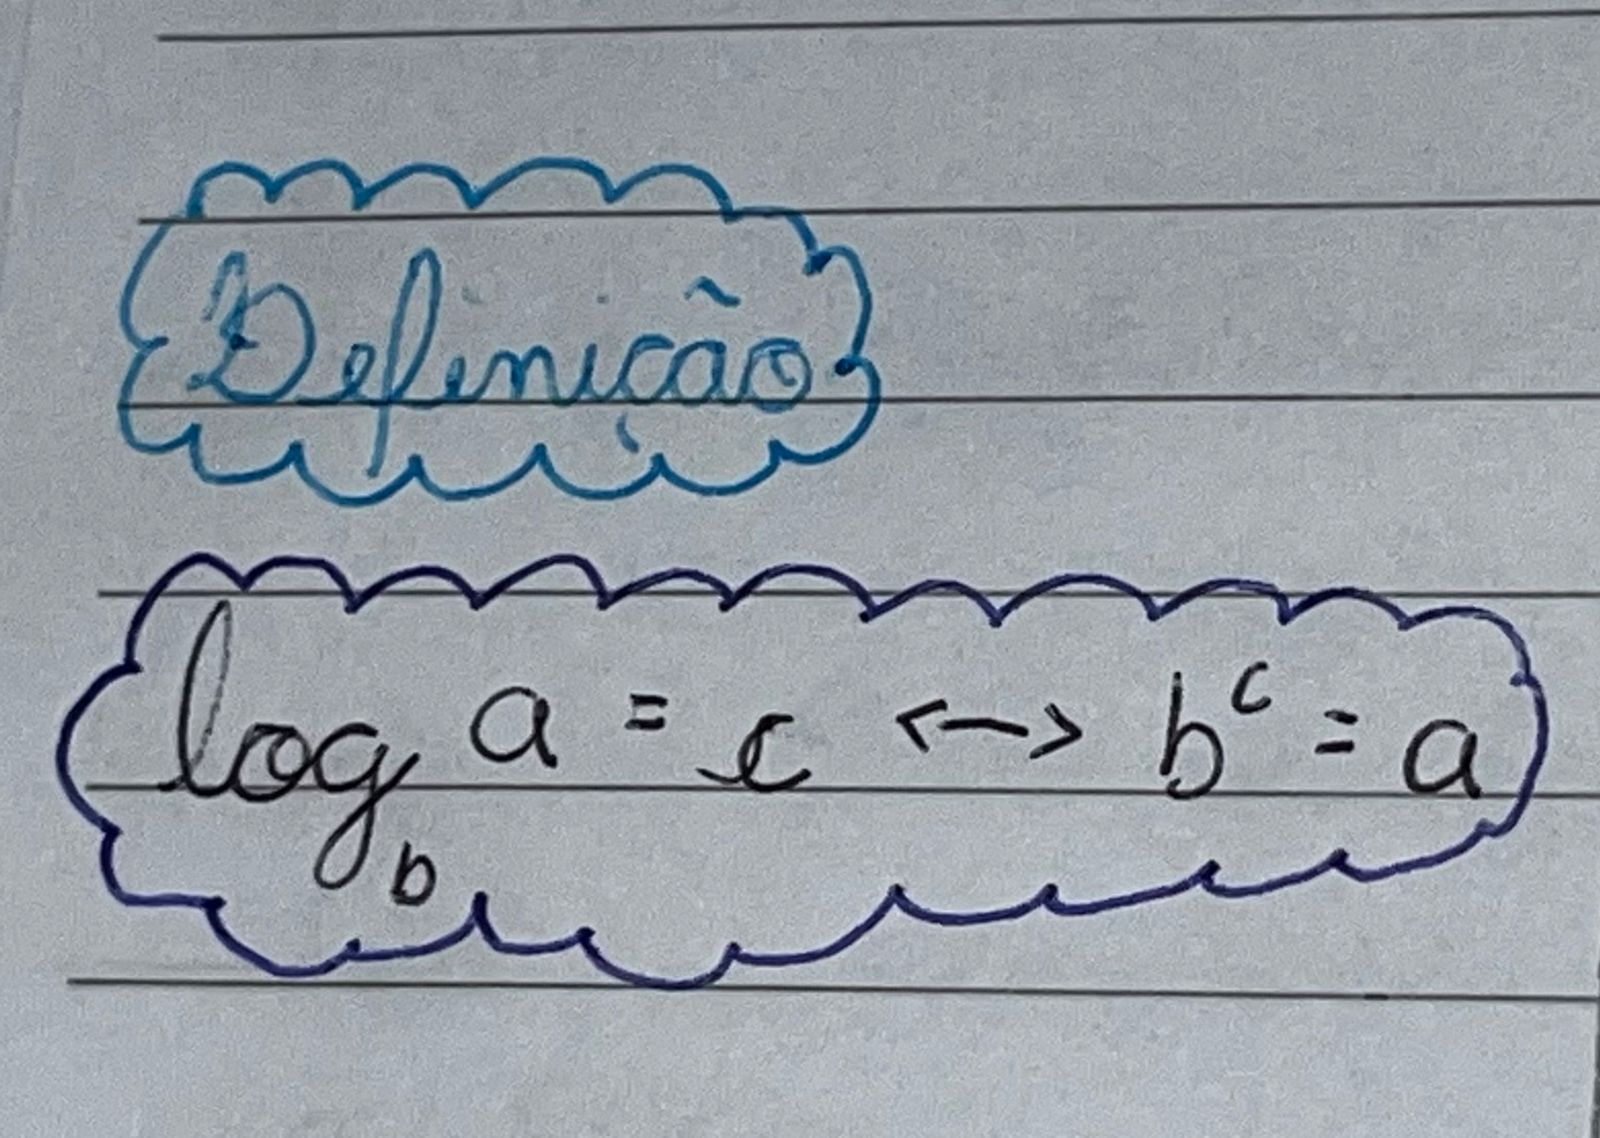 Definição
log_b a = c <--> b^c = a